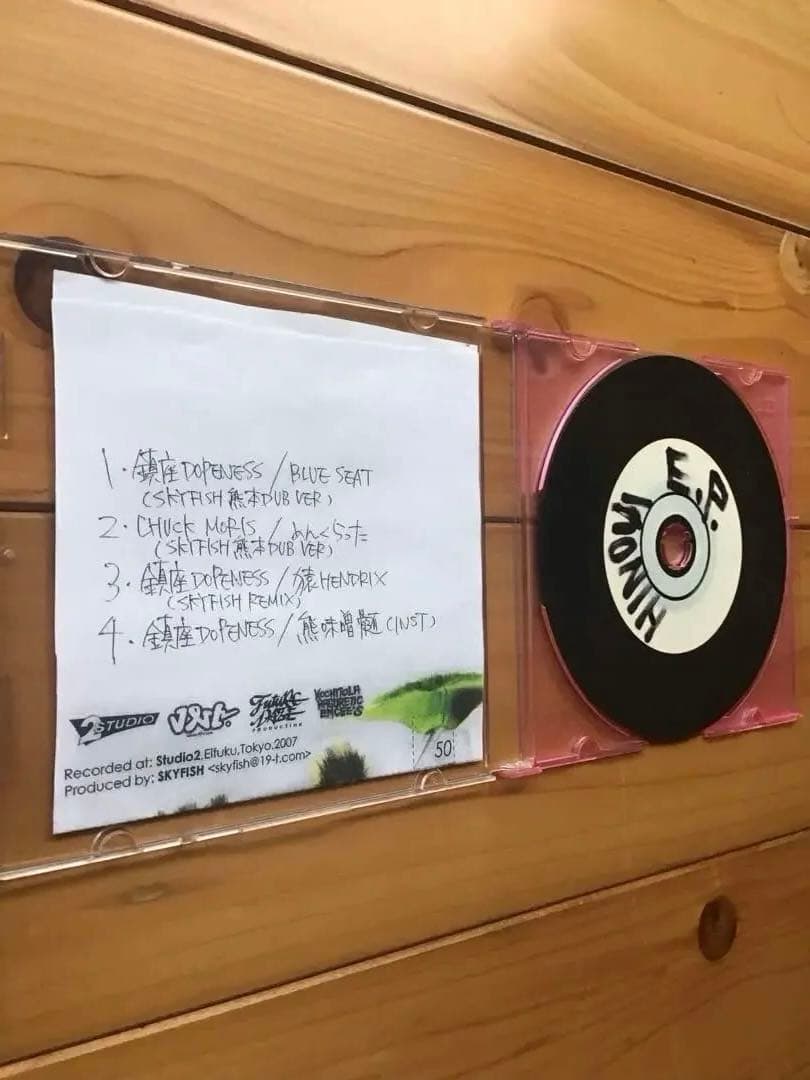 1. 鎮座DOPENESS / BLUE SEAT
(SKYFISH 熊本DUB VER)
2. CHUCK MORIS / あんくらった
(SKYFISH 熊本DUB VER)
3. 鎮座DOPENESS / 猿HENDRIX
(SKYFISH REMIX)
4. 鎮座DOPENESS / 熊味噌髄 (INST)
2STUDIO
FUTURE DAZE
PRODUCTION
50
Recorded at: Studio2,Eifuku,Tokyo,2007
Produced by: SKYFISH <skyfish@19-t.com>
HINOUY
E.P.